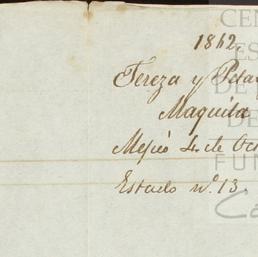 1862.
Tereza y Peta
Maquila
Mejico 4. de Oct
Estado nº. 13.
CEN
ES
DE
DE
FUN
Ca